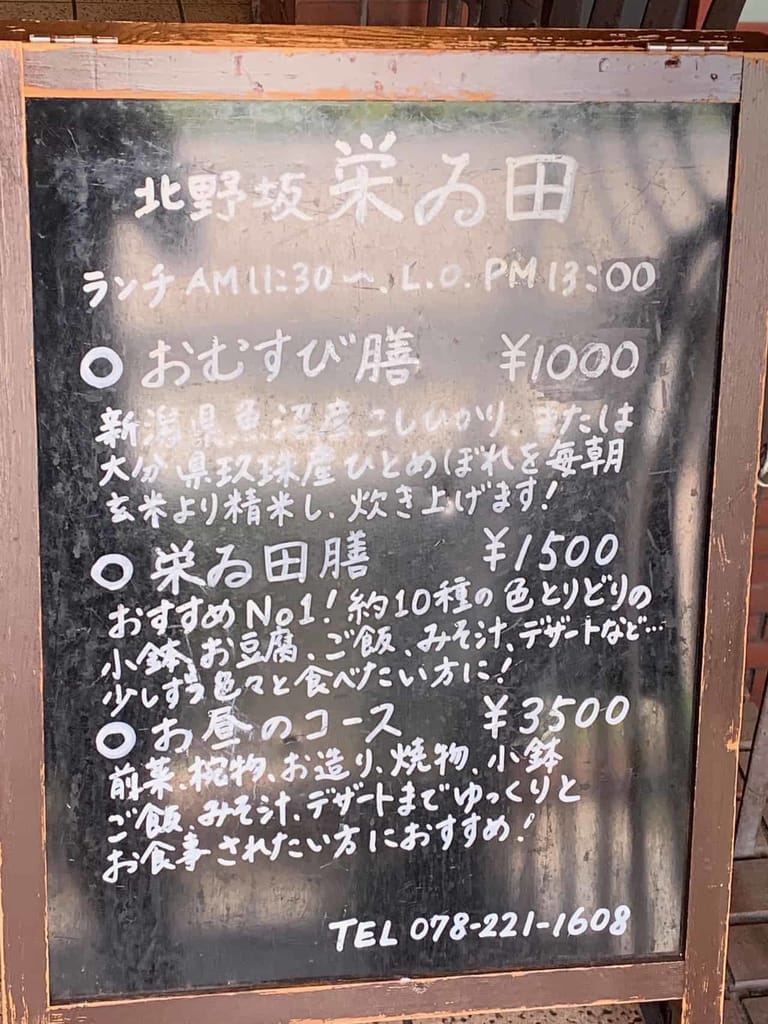 北野坂 栄ゐ田
ランチ AM11:30〜 L.O. PM13:00
○ おむすび膳 ¥1000
新潟県魚沼産こしひかり、または
大分県玖珠産ひとめぼれを毎朝
玄米より精米し、炊き上げます!
○ 栄ゐ田膳 ¥1500
おすすめNo1!約10種の色とりどりの
小鉢、お豆腐、ご飯、みそ汁、デザートなど…
少しずつ色々と食べたい方に!
○ お昼のコース ¥3500
前菜、椀物、お造り、焼物、小鉢
ご飯、みそ汁、デザートまでゆっくりと
お食事されたい方におすすめ!
TEL 078-221-1608